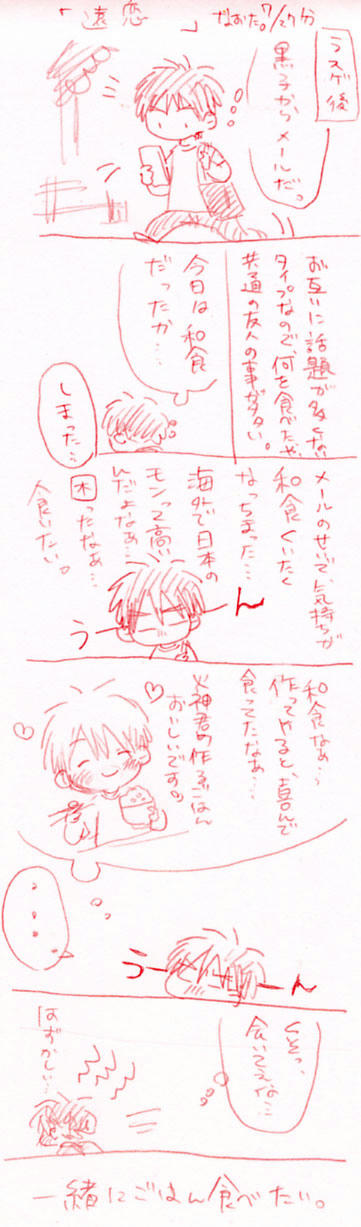 「遠恋　」なおた。7/27分
ラスゲ後
黒子からメールだ。
お互いに話題が多くない
タイプなので、何を食べたや、
共通の友人の事が多い。
今日は和食
だったか…
しまった…
メールのせいで、気持ちが
和食くいたく
なっちまった…
海外で日本の
モンって高い
んだよなぁ…
困ったなぁ…
食いたい。
うーーん
和食なぁ…
作ってやると、喜んで
食ってたなぁ…
火神君の作るごはん
おいしいです
・・・・
うーーん
くそっ、
会いてえな…
はずかしい…
一緒にごはん食べたい。